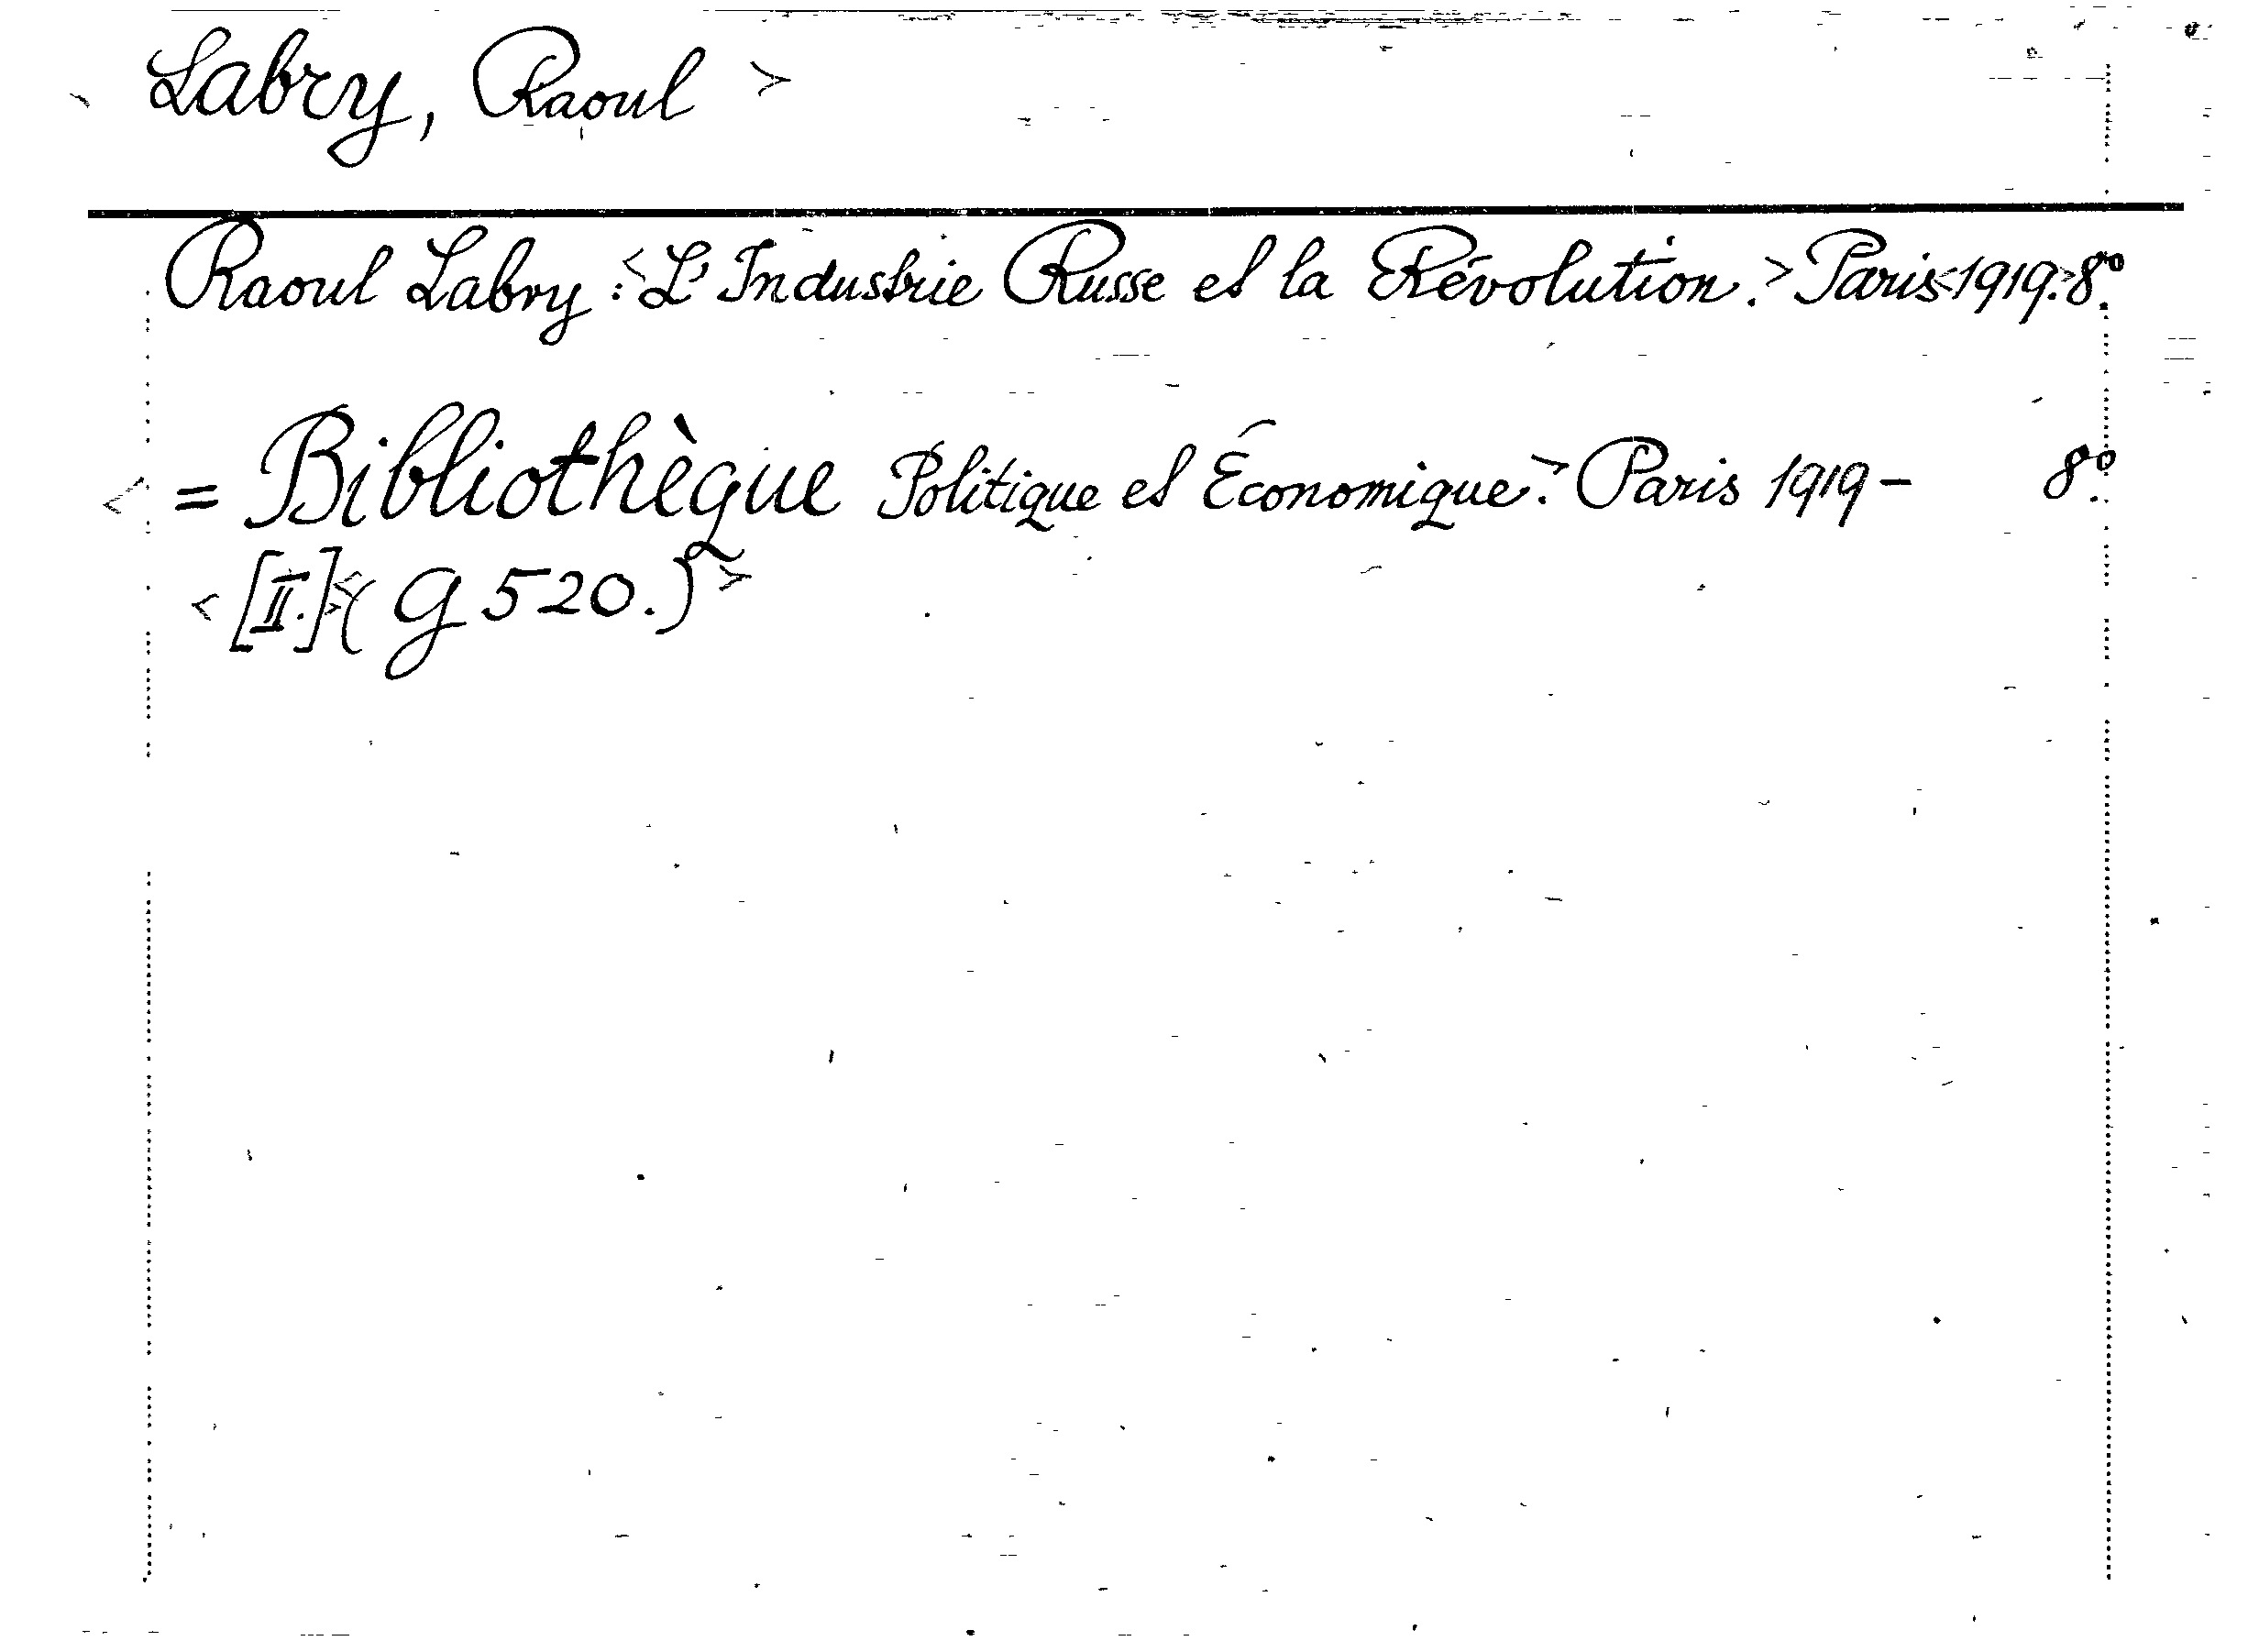 Labry, Raoul >
Raoul Labry : <L'Industrie Russe et la Révolution.> Paris <1919.> 8º.
< = Bibliothèque Politique et Économique.> Paris 1919 - 8º.
< [II.] > <( G 520.) >